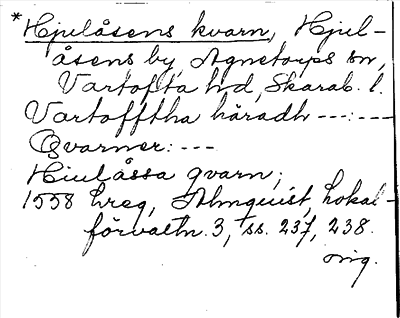 * Hjulåsens kvarn, Hjul-
åsens by, Agnetorps sn,
Vartofta hd, Skarab. l.
Vartofftha häradh ---: ---
Qvarner: ---
Hiulåssa qvarn;
1558 hreg, Almquist, Lokal-
förvaltn. 3, ss. 237, 238.
orig.